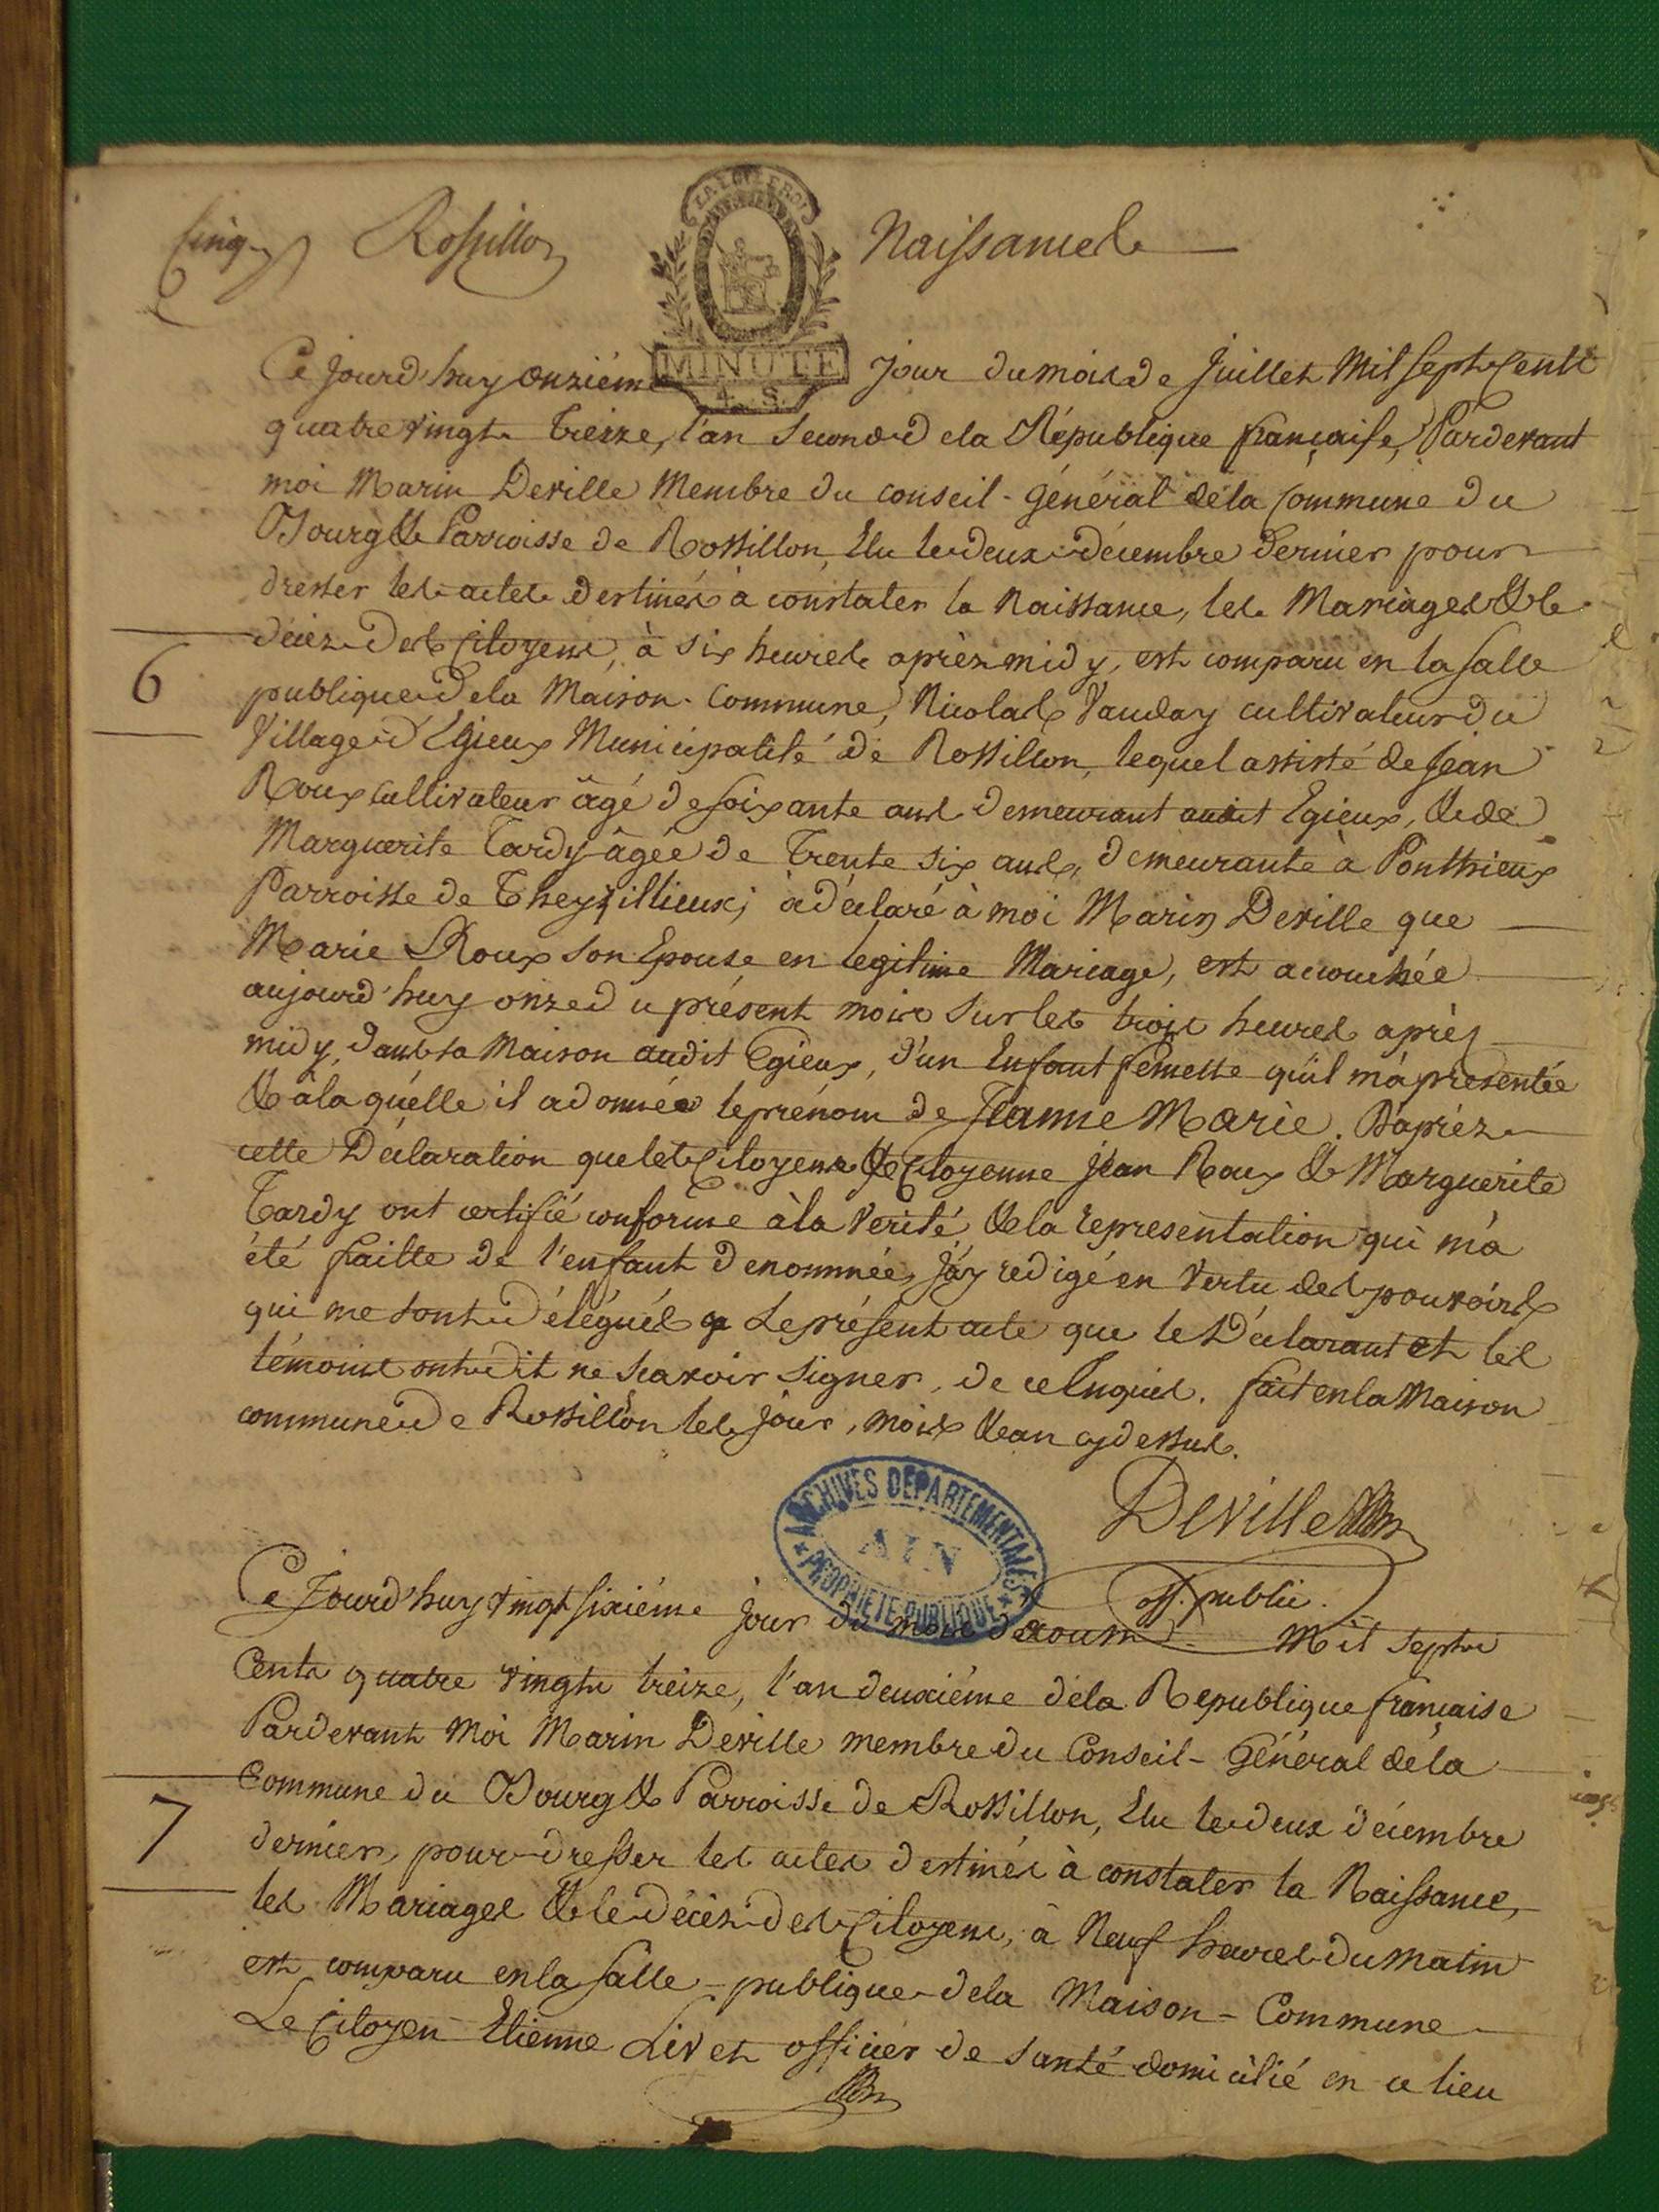 Cinq Rossillon Naissances
LA LOI LE ROI
MINUTE
4. S.
Ce jourd'huy onzième jour du mois de juillet mil sept cents
quatre vingt treize, l'an second de la République française, Pardevant
moi Marin Deville Membre du conseil-général de la commune du
Bourg & Parroisse de Rossillon, Elu le deux décembre dernier pour
dresser les actes destinés à constater la Naissance, les Mariages & le
décèz des Citoyens, à six heures aprèz midy, est comparu en la salle
6
publique de la Maison-Commune, Nicolas Vauday cultivateur du
Village d'Egieux Municipalité de Rossillon, lequel assisté de Jean
Roux cultivateur âgé de soixante ans demeurant audit Egieux, & de
Marguerite Tardy âgée de trente six ans, demeurante à Ponthieux
Parroisse de Cheyzillieux; a déclaré à moi Marin Deville que
Marie Roux son Epouse en legitime Mariage, est accouchée
aujourd'huy onze du présent mois sur les trois heures aprèz
midy, dans sa Maison audit Egieux, d'un Enfant femelle qu'il m'a presentée
& à la quelle il a donnée le prénom de Jeanne Marie. D'aprèz
cette Déclaration que les Citoyens & Citoyenne Jean Roux & Marguerite
Tardy ont certifié conforme à la Verité, & la representation qui m'a
été faitte de l'enfant denommée, j'ay redigé en vertu des pouvoirs
qui me sont délégués Le présent acte que le Déclarant et les
témoins ont dit ne scavoir signer, de ce Enquis. fait en la Maison
commune de Rossillon les jour, mois & an cydessus.
Deville
off. public.
ARCHIVES DEPARTEMENTALES
AIN
PROPRIETE PUBLIQUE
Ce Jourd'huy vingt sixiéme jour du mois d'aoust Mil sept
Cent quatre vingt treize, l'an deuxiéme de la Republique française
Pardevant Moi Marin Deville membre du Conseil-Général de la
Commune du Bourg & Parroisse de Rossillon, Elu le deux décembre
7
dernier, pour dresser les actes destinés à constater la Naissance,
les Mariages & le décèz des Citoyens, à Neuf heures du matin
est comparu en la salle-publique de la Maison-Commune
Le Citoyen Etienne Livet officier de santé domicilié en ce lieu